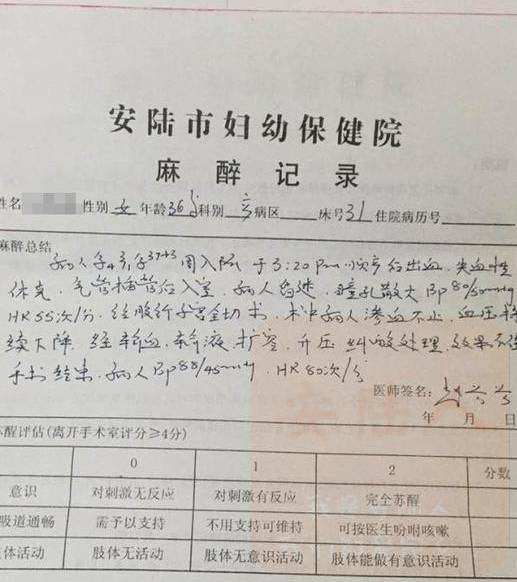 安陆市妇幼保健院
麻醉记录
姓名 性别 女 年龄36岁科别 产 病区 床号31 住院病历号
麻醉总结
病人孕4产1孕37+3周入院 于3:20pm顺产后出血,失血性
休克,气管插管后入室,病人昏迷,瞳孔散大 Bp 80/50mmHg
HR 55次/分,经腹行子宫全切术,术中病人渗血不止,血压持
续下降,经输血,输液,扩容,升压,纠酸处理,效果不佳
手术结束,病人Bp 88/45mmHg,HR 80次/分
医师签名:
年 月 日
苏醒评估(离开手术室评分≥4分)
0 1 2 分数
意识 对刺激无反应 对刺激有反应 完全苏醒
吸道通畅 需予以支持 不用支持可维持 可按医生吩咐咳嗽
肢体活动 肢体无活动 肢体无意识活动 肢体能做有意识活动